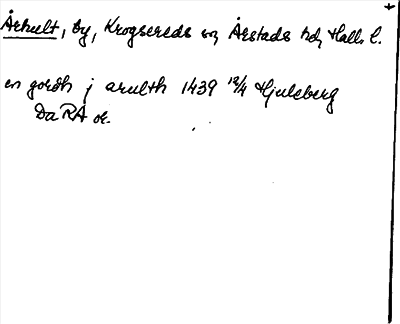 Århult, by, Krogsereds sn, Årstads hd, Hall. l.
en gordh j arulth 1439 12/4 Hjuleberg
DaRA or.